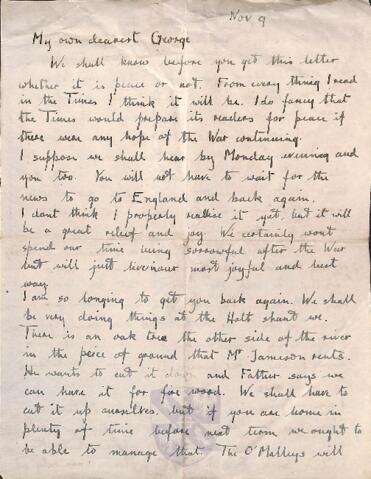 Nov 9
My own dearest George
We shall know before you get this letter
whether it is peace or not. From every thing I read
in the Times I think it will be. I do fancy that
the Times would prepare its readers for peace if
there were any hope of the War continuing.
I suppose we shall hear by Monday evening and
you too. You will not have to wait for the
news to go to England and back again.
I dont think I properly realise it yet, but it will
be a great relief and joy. We certainly wont
spend our time being sorrowful after the War
but will just live our most joyful and best
way.
I am so longing to get you back again. We shall
be very doing things at the Holt shant we.
There is an oak tree the other side of the river
in the peece of ground that Mr Jameson rents.
He wants to cut it down and Father says we
can have it for fire wood. We shall have to
cut it up ourselves, but if you are home in
plenty of time before next term we ought to
be able to manage that. The O'Malleys will